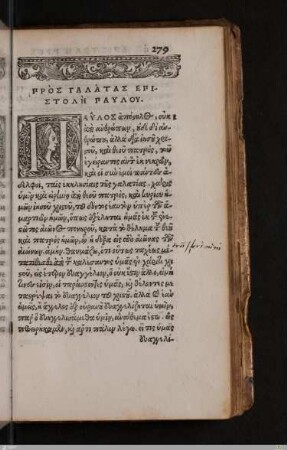 279
ΠΡΟΣ ΓΑΛΑΤΑΣ ΕΠΙ
ΣΤΟΛΗ ΠΑΥΛΟΥ.
ΠΑΥΛΟΣ ἀπόστολος, οὐκ
ἀπ' ἀνθρώπων, οὐδὲ δι' ἀν
θρώπου, ἀλλὰ διὰ ἰησοῦ χρι
στοῦ, καὶ θεοῦ πατρὸς, τοῦ
ἐγείραντος αὐτὸν ἐκ νεκρῶν,
καὶ οἱ σὺν ἐμοὶ πάντες ἀ
δελφοὶ, ταῖς ἐκκλησίαις τῆς γαλατίας. χάρις
ὑμῖν καὶ εἰρήνη ἀπὸ θεοῦ πατρὸς, καὶ κυρίου ἡ
μῶν ἰησοῦ χριστοῦ, τοῦ δόντος ἑαυτὸν ὑπὲρ τῶν ἁ
μαρτιῶν ἡμῶν, ὅπως ἐξέληται ἡμᾶς ἐκ τοῦ ἐνε
στῶτος αἰῶνος πονηροῦ, κατὰ τὸ θέλημα τοῦ θεοῦ
καὶ πατρὸς ἡμῶν, ᾧ ἡ δόξα εἰς τοὺς αἰῶνας τῶν
αἰώνων, ἀμήν. θαυμάζω, ὅτι οὕτως ταχέως με
τατίθεσθε ἀπὸ τοῦ καλέσαντος ὑμᾶς ἐν χάριτι χρι
στοῦ, εἰς ἕτερον εὐαγγέλιον, ὃ οὐκ ἔστιν ἄλλο, εἰ μή
τινές εἰσιν, οἱ ταράσσοντες ὑμᾶς, καὶ θέλοντες με
ταστρέψαι τὸ εὐαγγέλιον τοῦ χριστοῦ. ἀλλὰ καὶ ἐὰν
ἡμεῖς, ἢ ἄγγελος ἐξ οὐρανοῦ εὐαγγελίζηται ὑμῖν,
παρ' ὃ εὐηγγελισάμεθα ὑμῖν, ἀνάθεμα ἔστω. ὡς
προειρήκαμεν, καὶ ἄρτι πάλιν λέγω. εἴ τις ὑμᾶς
εὐαγγελί-